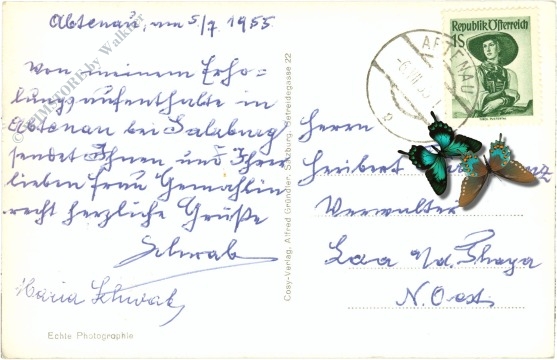 Abtenau, am 5/7 1955
Von meinem Erho=
lungsaufenthalte in
Abtenau bei Salzburg
sendet Ihnen und Ihrer
lieben Frau Gemahlin
recht herzliche Grüße
Schwab
Maria Schwab
Echte Photographie
Cosy-Verlag, Alfred Gründler, Salzburg, Getreidegasse 22
Republik Österreich
1S
ABTENAU
Herrn
Heribert
Verwalter
Laa a/d. Thaya
N. Oest.